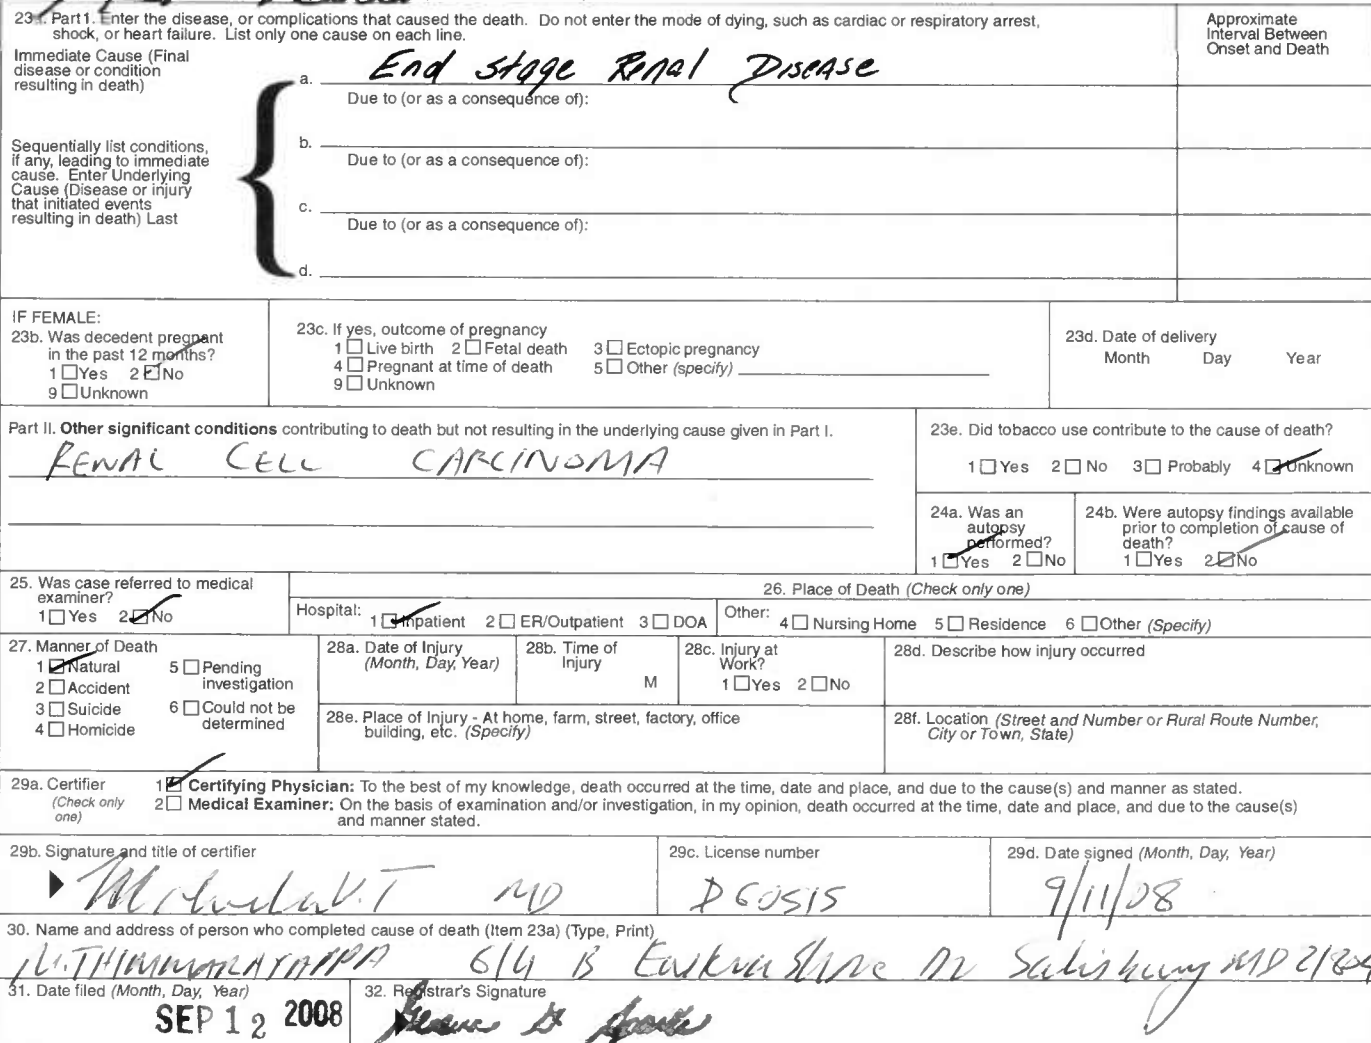 23a. Part 1. Enter the disease, or complications that caused the death. Do not enter the mode of dying, such as cardiac or respiratory arrest,
shock, or heart failure. List only one cause on each line.
Approximate
Interval Between
Onset and Death
Immediate Cause (Final
disease or condition
resulting in death)
a. End Stage Renal Disease
Due to (or as a consequence of):
Sequentially list conditions,
if any, leading to immediate
cause. Enter Underlying
Cause (Disease or injury
that initiated events
resulting in death) Last
b.
Due to (or as a consequence of):
c.
Due to (or as a consequence of):
d.
IF FEMALE:
23b. Was decedent pregnant
in the past 12 months?
1 ☐ Yes 2 ☑ No
9 ☐ Unknown
23c. If yes, outcome of pregnancy
1 ☐ Live birth 2 ☐ Fetal death 3 ☐ Ectopic pregnancy
4 ☐ Pregnant at time of death 5 ☐ Other (specify)
9 ☐ Unknown
23d. Date of delivery
Month Day Year
Part II. Other significant conditions contributing to death but not resulting in the underlying cause given in Part I.
RENAL CELL CARCINOMA
23e. Did tobacco use contribute to the cause of death?
1 ☐ Yes 2 ☐ No 3 ☐ Probably 4 ☑ Unknown
24a. Was an
autopsy
performed?
1 ☑ Yes 2 ☐ No
24b. Were autopsy findings available
prior to completion of cause of
death?
1 ☐ Yes 2 ☑ No
25. Was case referred to medical
examiner?
1 ☐ Yes 2 ☑ No
26. Place of Death (Check only one)
Hospital: 1 ☑ Inpatient 2 ☐ ER/Outpatient 3 ☐ DOA
Other: 4 ☐ Nursing Home 5 ☐ Residence 6 ☐ Other (Specify)
27. Manner of Death
1 ☑ Natural 5 ☐ Pending
investigation
2 ☐ Accident
3 ☐ Suicide 6 ☐ Could not be
determined
4 ☐ Homicide
28a. Date of Injury
(Month, Day, Year)
28b. Time of
Injury
M
28c. Injury at
Work?
1 ☐ Yes 2 ☐ No
28d. Describe how injury occurred
28e. Place of Injury - At home, farm, street, factory, office
building, etc. (Specify)
28f. Location (Street and Number or Rural Route Number,
City or Town, State)
29a. Certifier
(Check only
one)
1 ☑ Certifying Physician: To the best of my knowledge, death occurred at the time, date and place, and due to the cause(s) and manner as stated.
2 ☐ Medical Examiner: On the basis of examination and/or investigation, in my opinion, death occurred at the time, date and place, and due to the cause(s)
and manner stated.
29b. Signature and title of certifier
V.T MD
29c. License number
D60515
29d. Date signed (Month, Day, Year)
9/11/08
30. Name and address of person who completed cause of death (Item 23a) (Type, Print)
THIMMARAYAPPA 614 B Eastern Shore Dr Salisbury MD 21804
31. Date filed (Month, Day, Year)
SEP 12 2008
32. Registrar's Signature